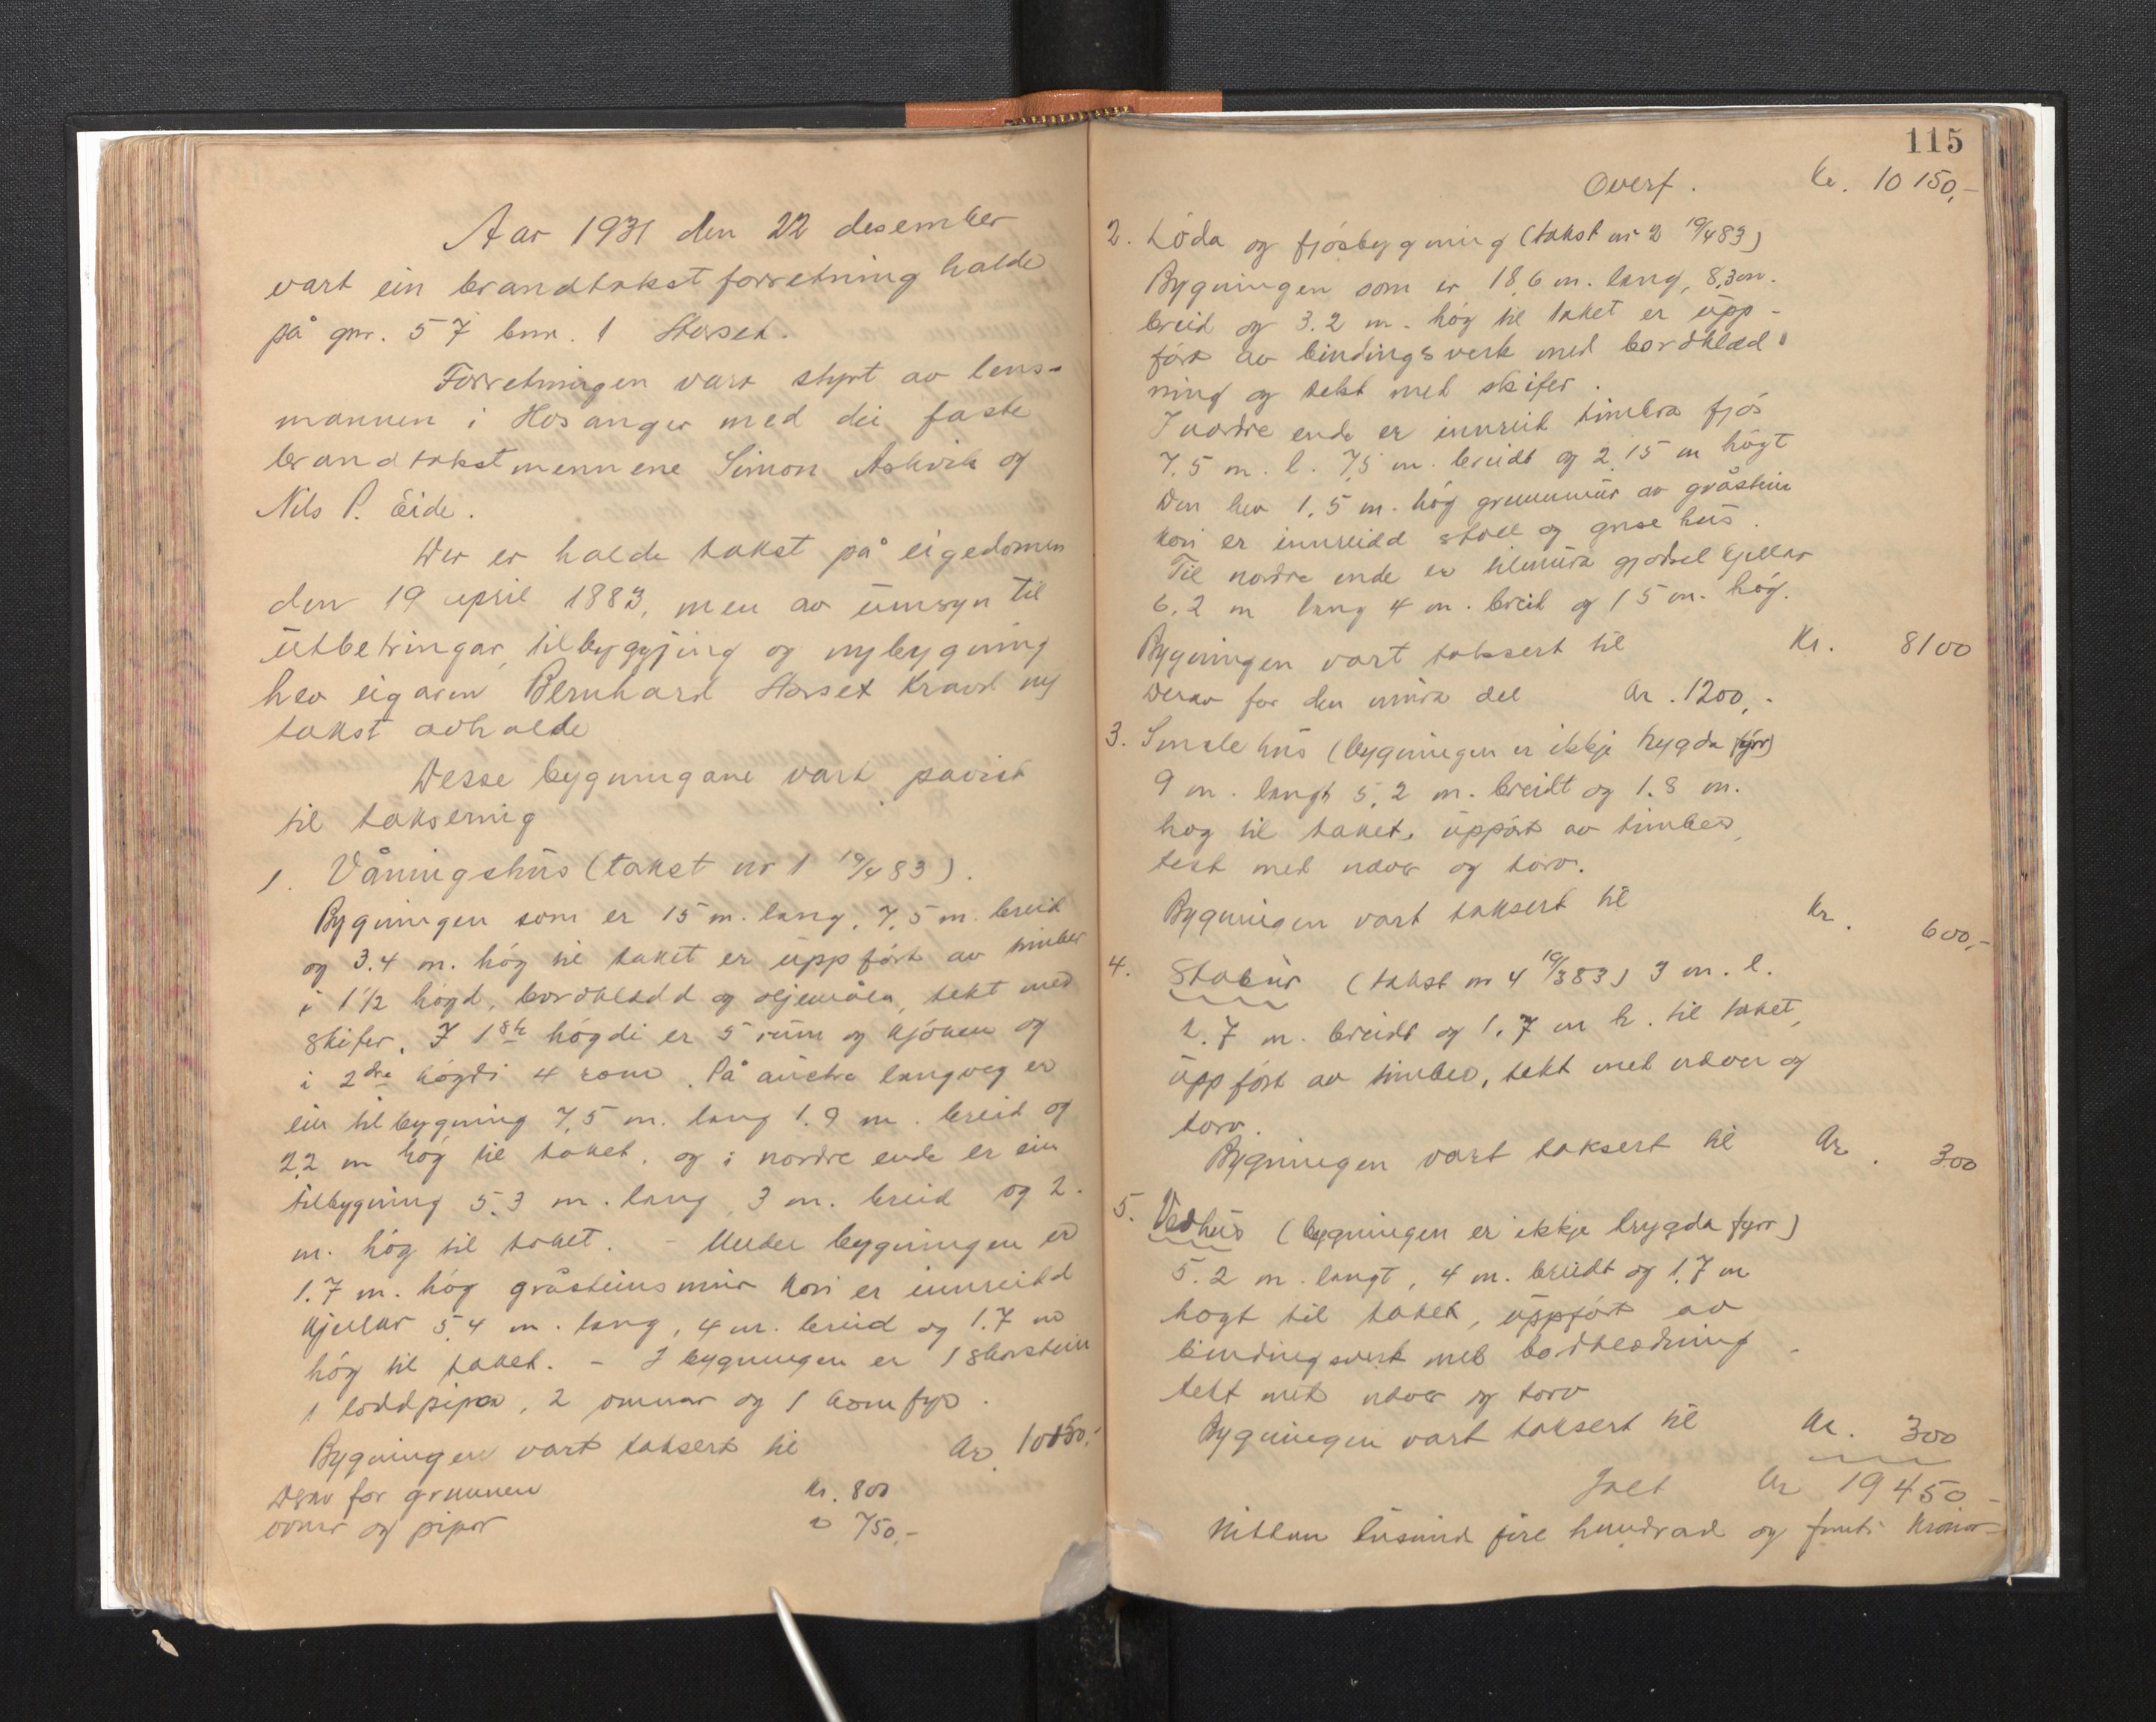 Aar 1931 den 22 desember
vart ein brandtakst forretning halde
på gnr. 57 bnr. 1 Storset.
Forretningen vart styrt av lens-
mannen i Hosanger med dei faste
brandtakstmennene Simon Askvik og
Nils P. Eide.
Der er halde takst på eigedomen
den 19 april 1883, men av umsyn til
utbetringar, tilbyggjing og nybygning
hev eigaren Bernhard Storset kravd ny
takst avhalde
Desse bygningane vart påvist
til taksering
1. Våningshus (takst nr 1 19/4 83).
Bygningen som er 15 m. lang, 7,5 m. breid
og 3.4 m. høg til taket er uppført av timber
i 1 1/2 høgd, bordkledd og oljemåla, tekt med
skifer. I 1ste høgdi er 5 rum og kjøken og
i 2dre høgdi 4 rom. På austre langveg er
ein tilbygning 7,5 m. lang 1.9 m. breid og
2,2 m høg til taket, og i nordre ende er ein
tilbygning 5.3 m. lang, 3 m. breid og 2.
m. høg til taket. - Under bygningen er
1.7 m. høg gråsteinsmur kori er innreidd
kjellar 5,4 m. lang, 4 m. breid og 1.7 m
høg til taket. - I bygningen er 1 skorstein
1 loddpipa, 2 omnar og 1 komfyr.
Bygningen vart taksert til Kr. 10150,-
Derav for grunnen Kr. 800
ovner og pipor " 750,-
115
Overf. Kr. 10150,-
2. Løda og fjøsbygning (takst nr 2 19/4 83)
Bygningen som er 18,6 m. lang, 8,3 m.
breid og 3.2 m. høg til taket er upp-
ført av bindingsverk med bordklæd
ning og tekt med skifer.
I nordre ende er innreid timbra fjøs
7,5 m. l. 7,5 m. breidt og 2,15 m høgt
Den hev 1,5 m. høg grunnmur av gråstein
kori er innreidd stall og grisehus.
Til nordre ende er tilmura gjødselkjellar
6,2 m lang 4 m. breid og 1 5 m. høg.
Bygningen vart taksert til Kr. 8100
Derav for den mura del Kr. 1200,-
3. Smalehus (bygningen er ikkje trygda fyrr)
9 m. langt 5,2 m. breidt og 1.8 m.
høg til taket, uppført av timber,
tekt med nævr og torv.
Bygningen vart taksert til Kr. 600,-
4. Stabur (takst nr 4 19/3 83) 3 m. l.
2.7 m. breidt og 1.7 m h. til taket,
uppført av timber, tekt med nævr og
torv.
Bygningen vart taksert til Kr. 300
5. Vedhus (bygningen er ikkje trygda fyrr)
5.2 m. langt, 4 m. breidt og 1,7 m
høgt til taket, uppført av
bindingsverk med bordklædning
tekt med nævr og torv
Bygningen vart taksert til Kr. 300
Ialt Kr 19450,-
Nittan tusund fire hundrad og femti Kronor